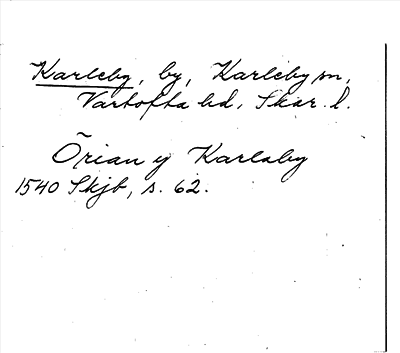 Karleby, by, Karleby sn,
Vartofta hd, Skar. l.
Örian y Karlaby
1540 Skjb, s. 62.